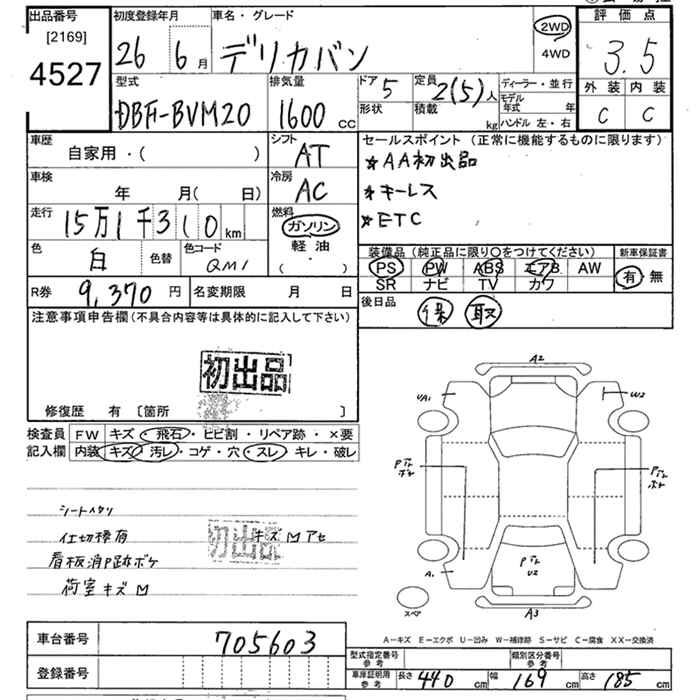 出品番号 初度登録年月 車名・グレード 評価点
[2169] 26年 6月 デリカバン 2WD 4WD 3.5
4527
型式 排気量 ドア 5 定員 2(5)人 ディーラー・並行 外装 内装
DBF-BVM20 1600cc 形状 積載 kg モデル年式 年 C C
ハンドル 左・右
車歴 シフト セールスポイント (正常に機能するものに限ります)
自家用・( ) AT ★AA初出品
車検 冷房 ★キーレス
年 月( 日) AC ★ETC
走行 燃料
15万1千310km ガソリン
色 白 色替 色コード QM1 軽油 装備品(純正品に限り○をつけてください) 新車保証書
( ・ ) PS PW ABS エアB AW 有・無
R券 9,370円 名変期限 月 日 SR ナビ TV カワ
注意事項申告欄(不具合内容等は具体的に記入して下さい) 後日品 保 取
初出品
修復歴 有 〔箇所 〕
検査員 FW キズ・飛石・ヒビ割・リペア跡・×要
記入欄 内装 キズ・汚レ・コゲ・穴・スレ・キレ・破レ
シートヘタリ
仕切棒有 キズMアセ
初出品
看板消P跡ボケ
荷室キズM
A2
UA1 W2
Pテル ボケ
Pテル ボケ
Pテル U2
A1
スペア A3
A-キズ E-エクボ U-凹み W-補修跡 S-サビ C-腐食 XX-交換済
車台番号 705603
型式指定番号 参考 類別区分番号 参考
登録番号 車庫証明用 参考 長さ 440cm 幅 169cm 高さ 185cm